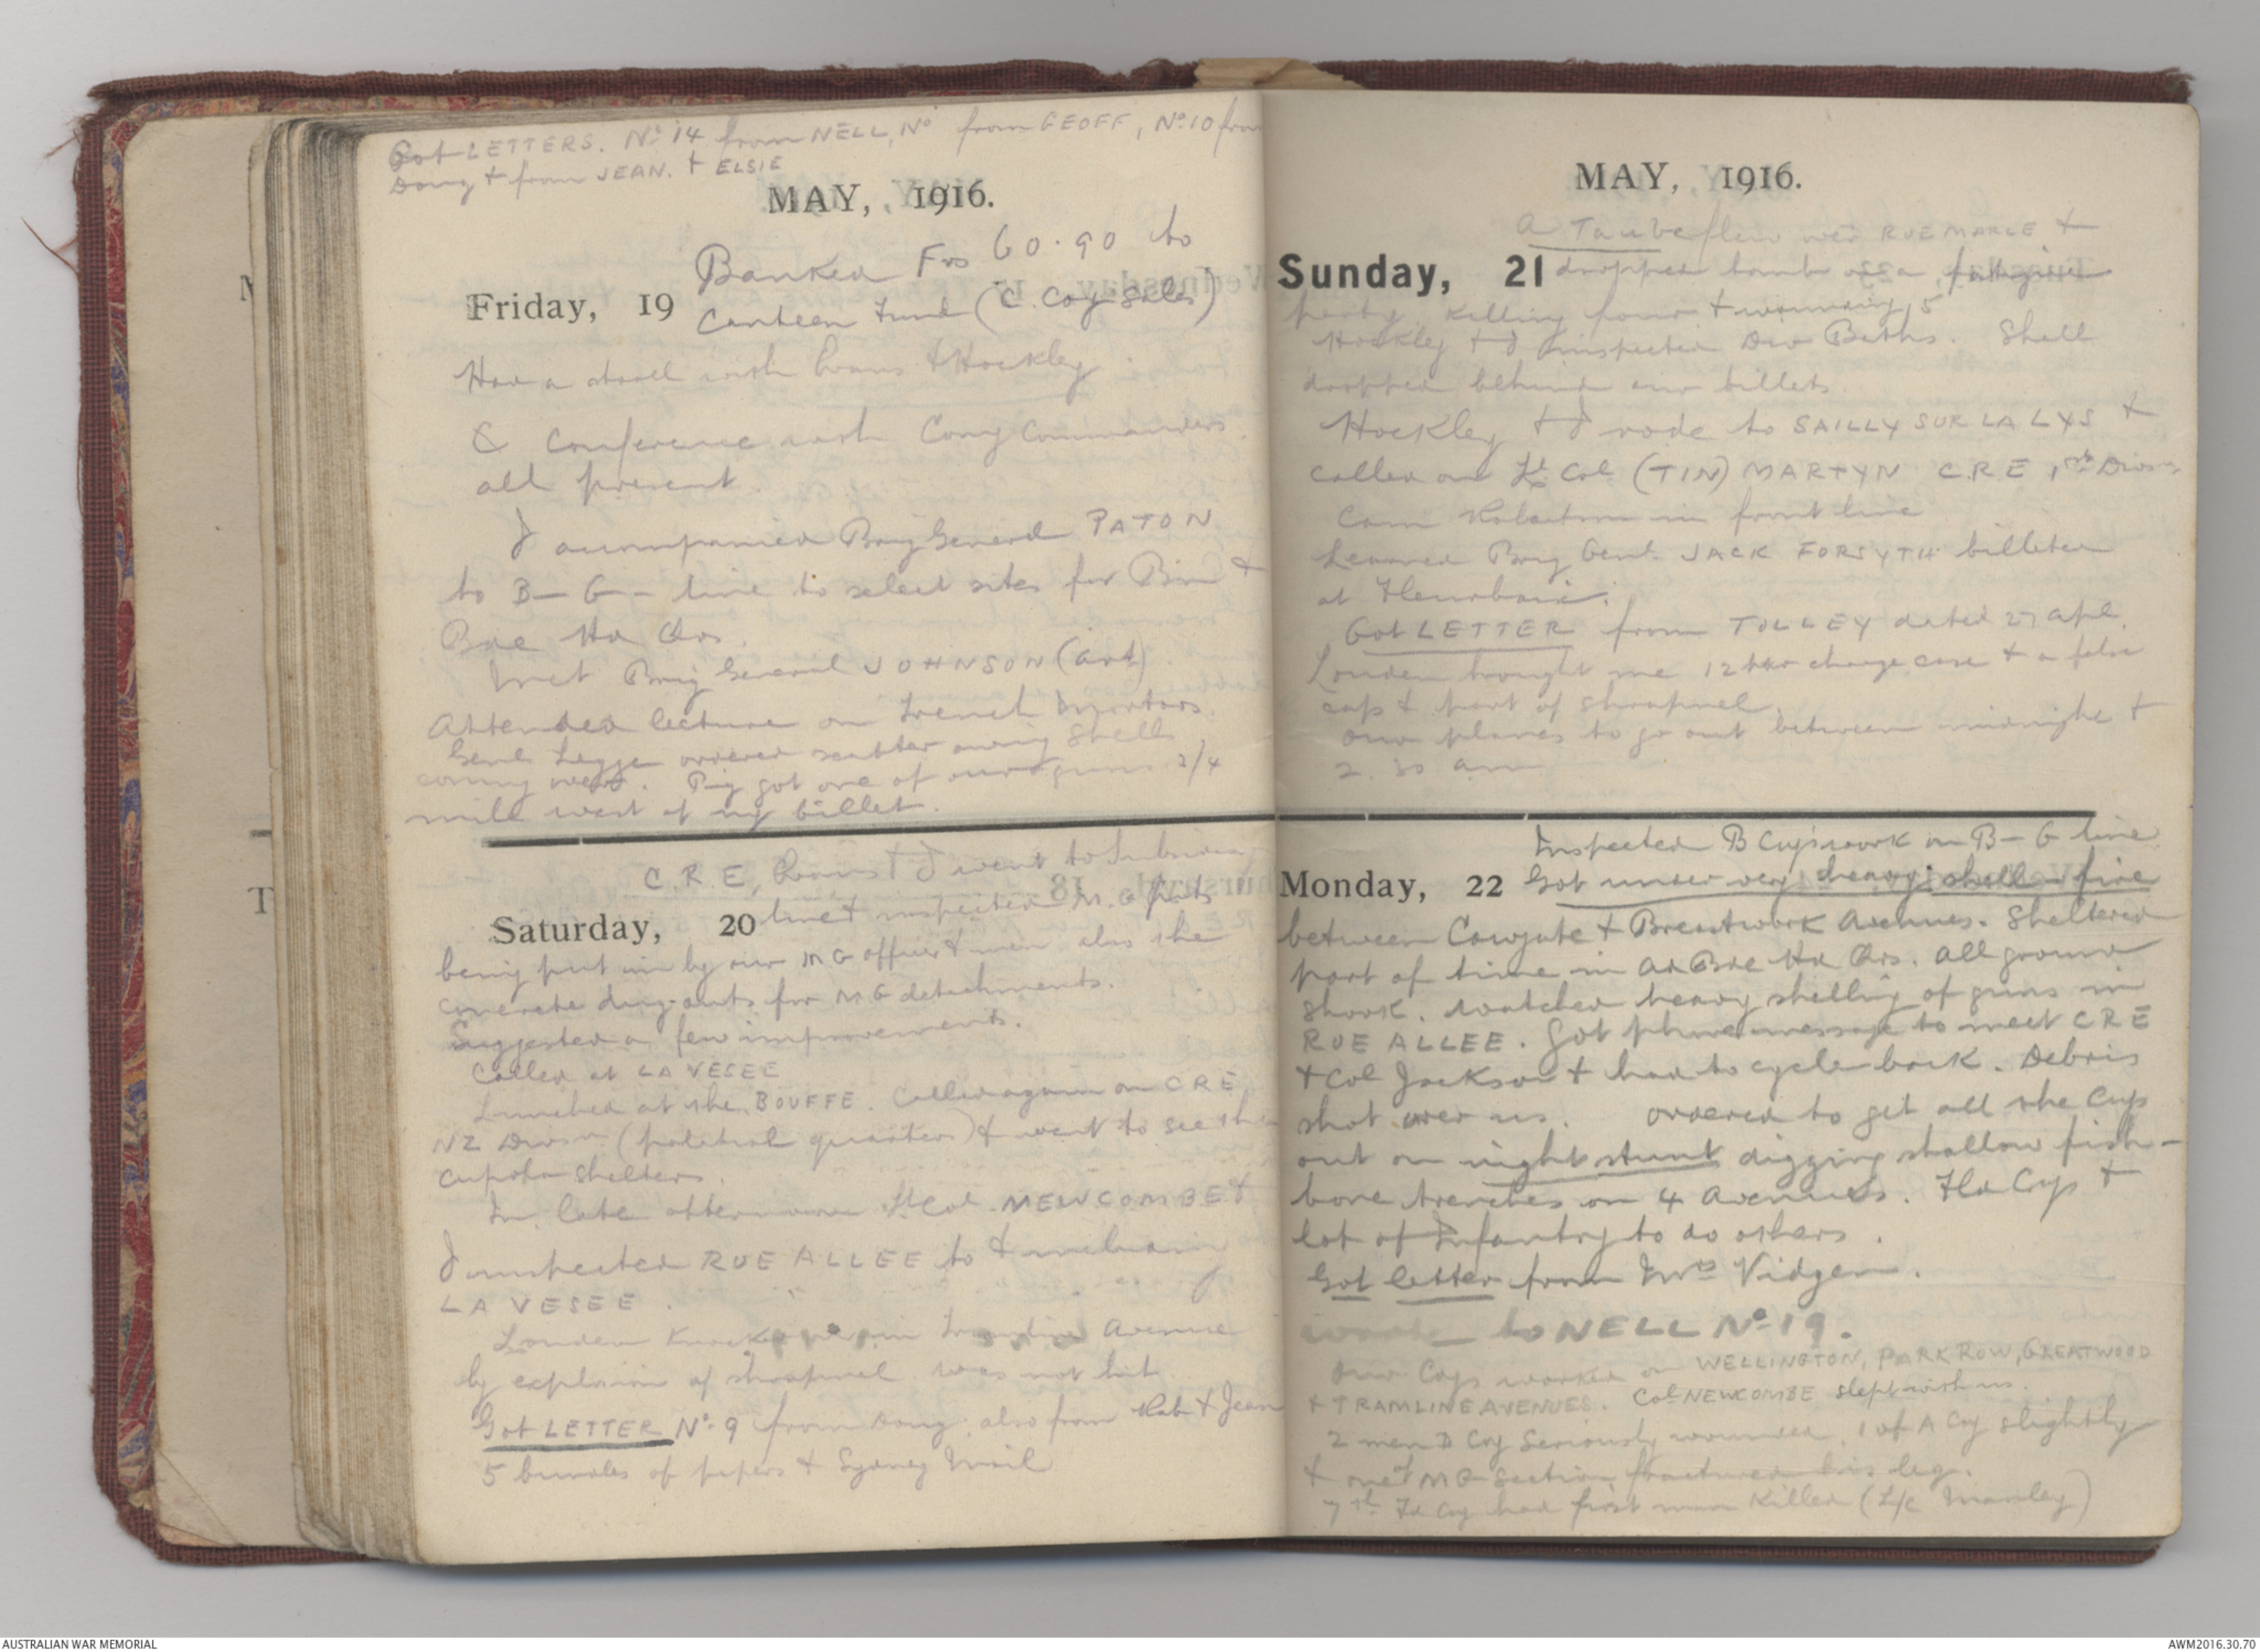 Got LETTERS. No 14 from NELL, No from GEOFF, No 10 from
Doug + from JEAN. + ELSIE
MAY, 1916.
Banked Frs 60.90 to
Friday, 19
Canteen Fund (C. Coy Sales)
Had a stroll with Evans & Hockley
& Conference with Comy Commanders
all present.
I accompanied Brig General PATON
to B – G – line to select sites for Bren &
Bde Hd Qrs.
Met Brig General JOHNSON (Art).
Attended lecture on Trench Mortars.
Genl Legge ordered scatter owing shells
coming over. Pig got one of our guns 3/4
mile west of my billet.
C.R.E, Evans & I went to Subsidiary
Saturday, 20
line & inspected M.G. ptts
being put in by our MG officer & men also the
concrete dug-outs for MG detachments.
Suggested a few improvements.
Called at LA VESEE
Lunched at the BOUFFE. Called again on CRE
NZ Divsn (palatial quarters) & went to see the
cupola shelters.
In late afternoon Lt Col. NEWCOMBE &
I inspected RUE ALLEE to & including
LA VESEE.
Louden knocked over in Tramline Avenue
by explosion of shrapnel was not hit
Got LETTER No 9 from Doug. also from Rob & Jean
5 bundles of papers & Sydney Mail
MAY, 1916.
A Taube flew over RUE MARLE &
Sunday, 21
dropped bomb on a fatigue
party killing four & wounding 5
Hockley & I inspected Div Baths. Shell
dropped behind our billets.
Hockley & I rode to SAILLY SUR LA LYS &
called on Lt Col (TIN) MARTYN C.R.E 1st Divsn
Cam Robertson in front line
Learned Brig Genl. JACK FORSYTH billeted
at Fleurbaix.
Got LETTER from TOLLEY dated 27 Apl.
Louden brought me 12 pdr charge case & a false
cap & part of shrapnel.
Our planes to go out between midnight &
2. 30 am
Inspected B Coy's work on B – G line.
Monday, 22
Got under very heavy shell-fire
between Cowgate & Breastwork Avenues. Sheltered
part of time in Ad Bde Hd Qrs. All ground
shook. Watched heavy shelling of guns in
RUE ALLEE. Got phone message to meet CRE
& Col Jackson & had to cycle back. Debris
shot over us. Ordered to get all the Coys
out on night stunt digging shallow fish-
bone trenches on 4 Avenues. Fld Coys &
lot of Infantry to do others.
Got letter from Mrs Vidgen.
Wrote to NELL No 19.
Our Coys worked on WELLINGTON, PARK ROW, GREATWOOD
& TRAMLINE AVENUES. Col NEWCOMBE slept with us.
2 men D Coy seriously wounded, 1 of A Coy slightly
& one of MG Section fractured his leg.
7th Fd Coy had first man killed (L/c Manley)
AUSTRALIAN WAR MEMORIAL
AWM2016.30.70